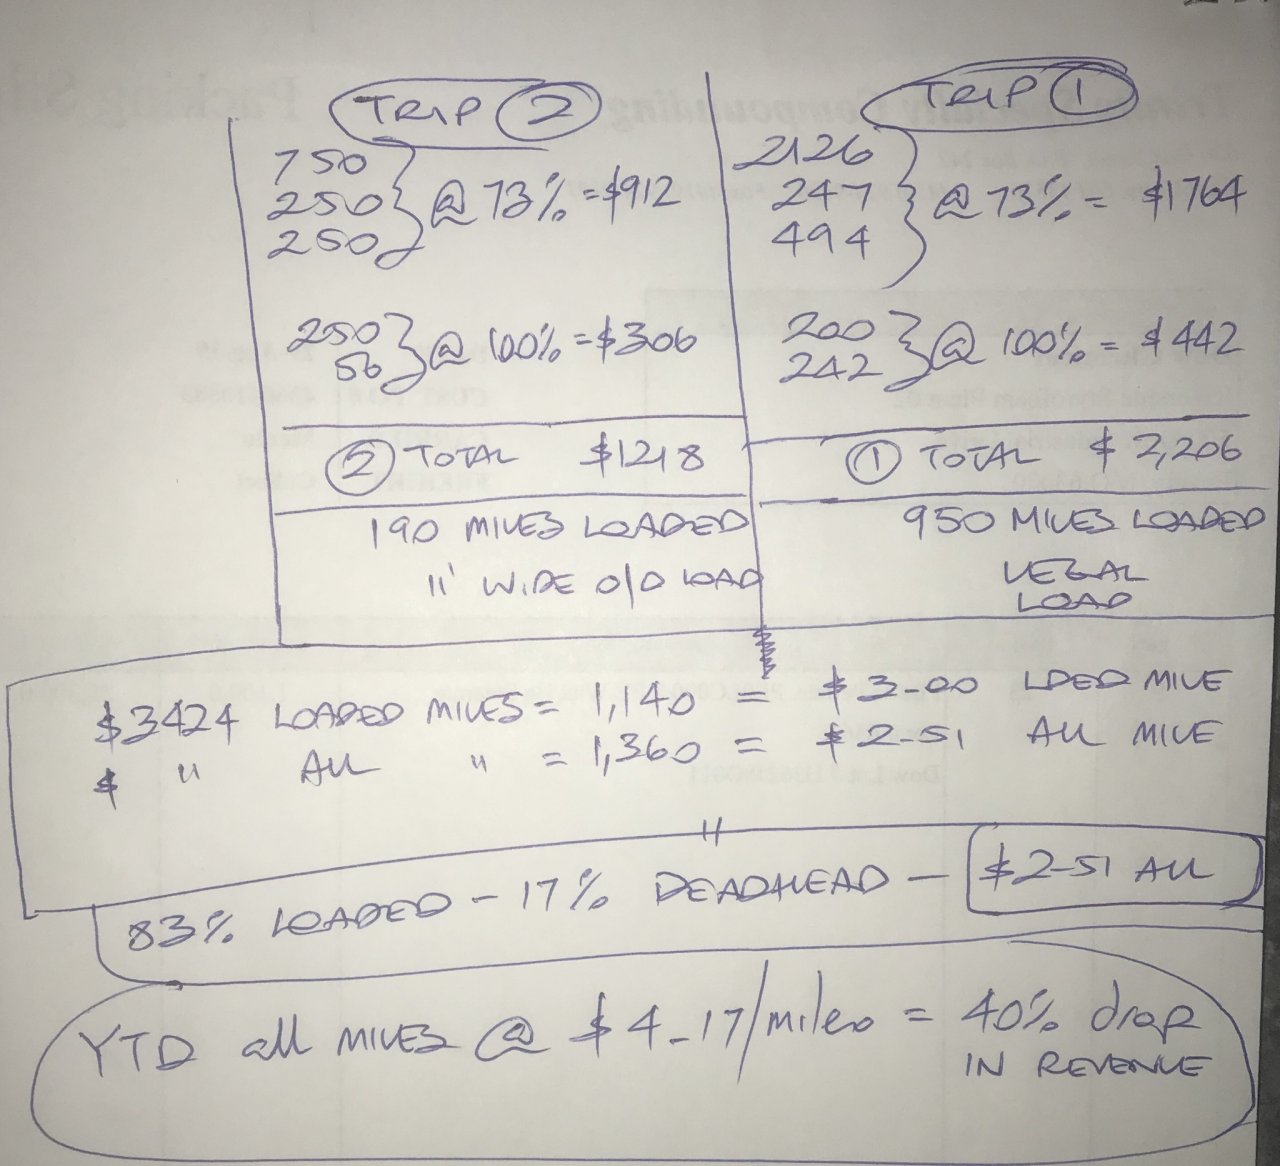 TRIP 2
750
250
250
@ 73% = $912
250
56
@ 100% = $306
2 TOTAL $1218
190 MILES LOADED
11' WIDE O/D LOAD
TRIP 1
2126
247
494
@ 73% = $1764
200
242
@ 100% = $442
1 TOTAL $2,206
950 MILES LOADED
LEGAL
LOAD
$3424 LOADED MILES = 1,140 = $3-00 LDED MILE
$ " ALL " = 1,360 = $2-51 ALL MILE
83% LOADED - 17% DEADHEAD - $2-51 ALL
YTD all MILES @ $4-17/miles = 40% drop
IN REVENUE